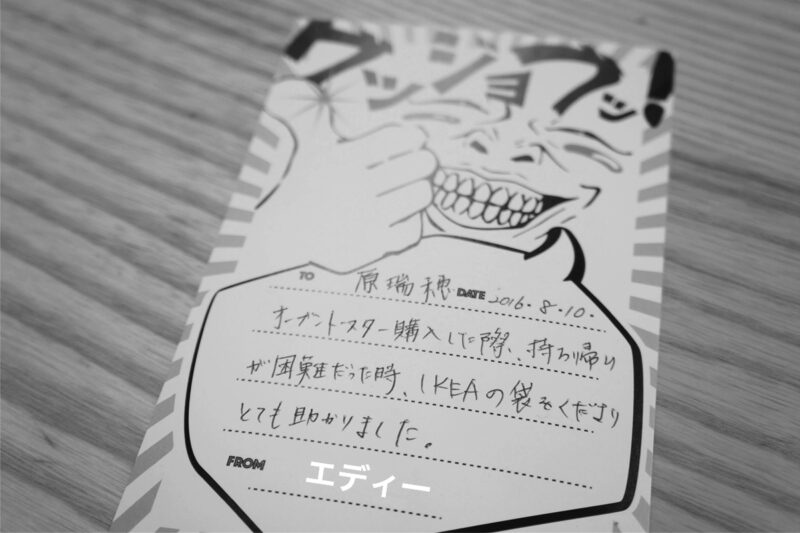 グッジョブッ!
TO 原瑞穂 DATE 2016.8.10.
オーブントースター購入した際、持ち帰り
が困難だった時、IKEAの袋をくださり
とても助かりました。
FROM エディー